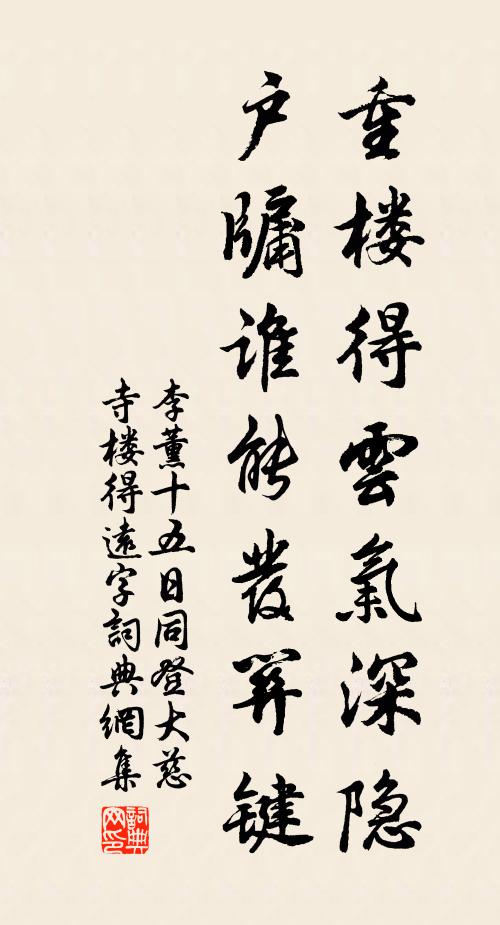 重楼得雲氣深隐
户牖谁能發关键
李薰十五日同登大慈
寺楼得遠字詞典網集
詞典
网印